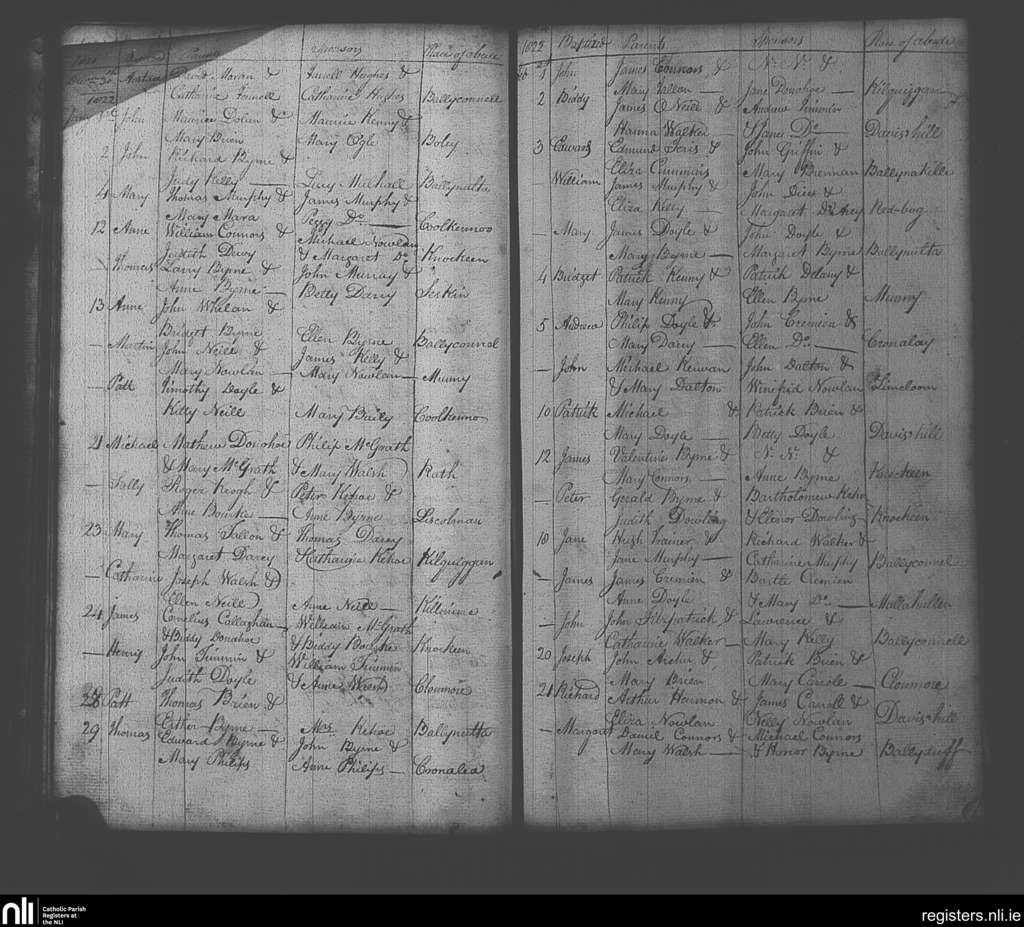 Sponsors Place of abode
30th David Moran & Farrell Hughes &
1822 Catharine Farrell Catharine Hughes Ballyconnell
John Maurice Dolan & Maurice Kenny &
Mary Brien Mary Ogle Boley
2 John Richard Byrne &
Judy Kelly Lucy Mulhall Ballynulta
4 Mary Thomas Murphy & James Murphy &
Mary Mara Peggy Do. Coolkennoo
12 Anne William Connors & Michael Nowlan
Judith Dewy & Margaret Do Knockeen
— Thomas Larry Byrne & John Murray &
Anne Byrne — Betty Darcy Seskin
13 Anne John Whelan &
Bridget Byrne Ellen Byrne Ballyconnol
— Martin John Neill & James Kelly &
Mary Nowlan — Mary Nowlan — Munny
— Patt Timothy Doyle &
Kitty Neill Mary Baily Coolkenno
21 Michael Mathew Donohoe Philip McGrath
& Mary McGrath & Mary Walsh Rath
— Sally Roger Keogh & Peter Kehoe &
Anne Bourke — Anne Byrne Liscolman
23 Mary Thomas Fallon & Thomas Darcy
Margaret Darcy & Catharine Kehoe Kilquiggan
— Catharine Joseph Walsh &
Ellen Neill Anne Neill —
24 James Cornelius Callaghan William McGrath
& Biddy Donohoe & Biddy Knockeen
— Henry John Timmin & William Timmin
Judith Doyle & Anne Walsh Clonmore
28 Patt Thomas Brien &
Esther Byrne — Mrs. Kehoe Ballynulta
29 Thomas Edward Byrne & John Byrne &
Mary Philips Anne Philips — Cronalea
1822 Baptized Parents Sponsors Place of abode
1 John James Connors & N. N. &
Mary Fallon — Jane Donohoe — Kilquiggan
2 Biddy James O Neill & Andrew Timmin
Hanna Walker — & Jane Do Davis's hill
3 Edward Edmund & John Griffin &
Eliza Cummins Mary Brennan Ballynakille
— William James Murphy & John &
Eliza Kelly — Margaret Red-bog
— Mary James Doyle & John Doyle &
Mary Byrne — Margaret Byrne Ballynulta
4 Bridget Patrick Kenny & Patrick Delany &
Mary Kenny Ellen Byrne Munny
5 Andrew Philip Doyle & John Cremien &
Mary Darcy — Ellen Do. — Cronalay
— John Michael Keiwan John Dalton &
& Mary Dalton Winifrid Nowlan
10 Patrick Michael & Patrick Brien &
Mary Doyle — Betty Doyle Davis's hill
12 James Valentine Byrne & N. N. &
Mary Connors — Anne Byrne Knockeen
— Peter Gerald Byrne & Bartholomew Kehoe
Judith Dowling & Elenor Dowling Knockeen
18 Jane Hugh Trainer & Richard Walker &
Jane Murphy — Catharine Murphy Ballyconnel
— James James Cremien & Bartle Cremien
Anne Doyle & Mary Do. — Mullahullen
— John John Fitzpatrick & Lawrence &
Catharine Walker — Mary Kelly Ballyconnell
20 Joseph John Archer & Patrick Brien &
Mary Brien Mary Carrole — Clonmore
21 Richard Arthur Harmon & James Carroll &
Eliza Nowlan Nelly Nowlan Davis's hill
— Margaret Daniel Connors & Michael Connors
Mary Walsh — & Honor Byrne Ballyduff
nli Catholic Parish
Registers at
the NLI
registers.nli.ie